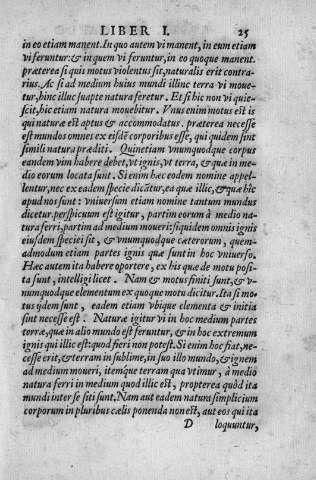 LIBER I. 25
in eo etiam manent. In quo autem vi manent, in eum etiam
vi feruntur: & in quem vi feruntur, in eo quoque manent.
præterea si quis motus violentus sit, naturalis erit contra-
rius. Ac si ad medium huius mundi illinc terra vi moue-
tur, hinc illuc suapte natura feretur. Et si hic non vi quie-
scit, hic etiam natura mouebitur. Vnus enim motus est is
qui naturæ est aptus & accommodatus. præterea necesse
est mundos omnes ex eisdē corporibus esse, qui quidem sint
simili natura præditi. Quinetiam vnumquodque corpus
eandem vim habere debet, vt ignis, vt terra, & quæ in me-
dio eorum locata sunt. Si enim hæc eodem nomine appel-
lentur, nec ex eadem specie dicātur, ea quæ illic, & quæ hic
apud nos sunt: vniuersum etiam nomine tantum mundus
dicetur. perspicuum est igitur, partim eorum à medio na-
tura ferri, partim ad medium moueri: siquidem omnis ignis
eiusdem speciei sit, & vnumquodque cæterorum, quem-
admodum etiam partes ignis quæ sunt in hoc vniuerso.
Hæc autem ita habere oportere, ex his quæ de motu posi-
ta sunt, intelligi licet. Nam & motus finiti sunt, & v-
numquodque elementum ex quoque motu dicitur. Ita si mo-
tus ijdem sunt, eadem etiam vbique elementa & initia
sint necesse est. Naturæ igitur vi in hoc medium partes
terræ, quæ in alio mundo est feruntur, & in hoc extremum
ignis qui illic est: quod fieri non potest. Si enim hoc fiat, ne-
cesse erit, & terram in sublime, in suo illo mundo, & ignem
ad medium moueri, itemque terram qua vtimur, à medio
natura ferri in medium quod illic est, propterea quòd ita
mundi inter se siti sunt. Nam aut eadem natura simplicium
corporum in pluribus cælis ponenda non est, aut eos qui ita
D loquuntur,